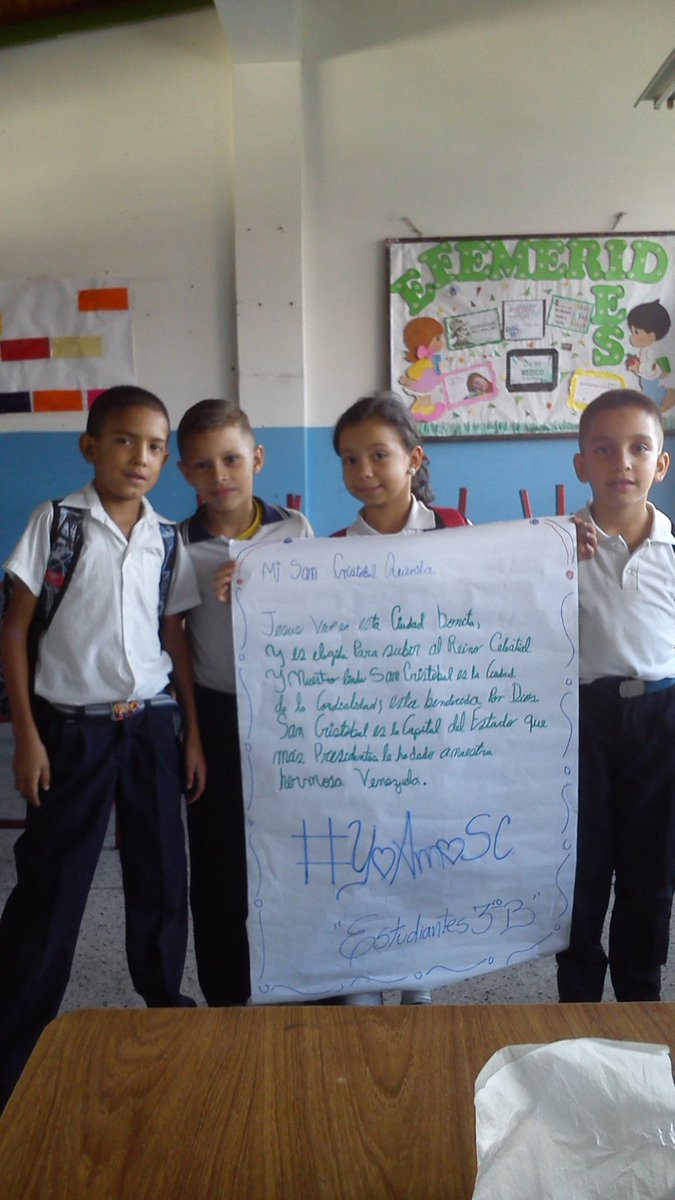 EFEMERIDES
DIA DEL
MEDICO
Mi San Cristobal Querida
Jesus Vive en esta Ciudad bonita,
y es elegida Para subir al Reino Celestial
y Nuestro lindo San Cristóbal es la Ciudad
de la Cordialidad, esta bendecida Por Dios.
San Cristóbal es la Capital del Estado que
más Presidentes le ha dado a nuestra
hermosa Venezuela.
#YoAmoSC
"Estudiantes 3ro B"